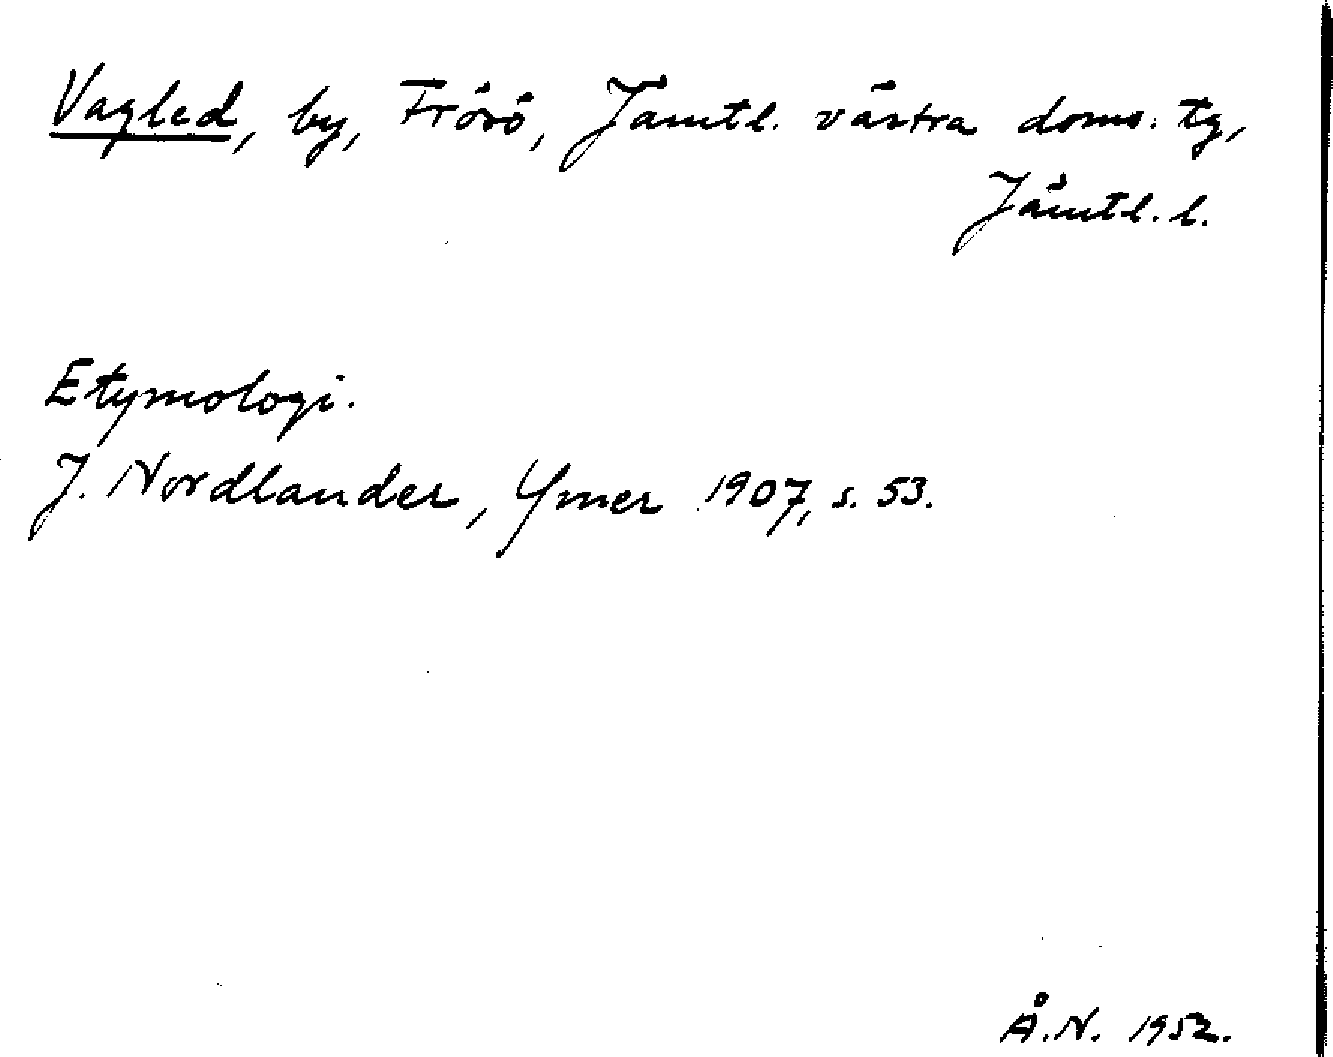 Vagled, by, Frösö, Jämtl. västra doms. tg,
Jämtl. l.
Etymologi.
J. Nordlander, Ymer 1907, s. 53.
Å.N. 1952.